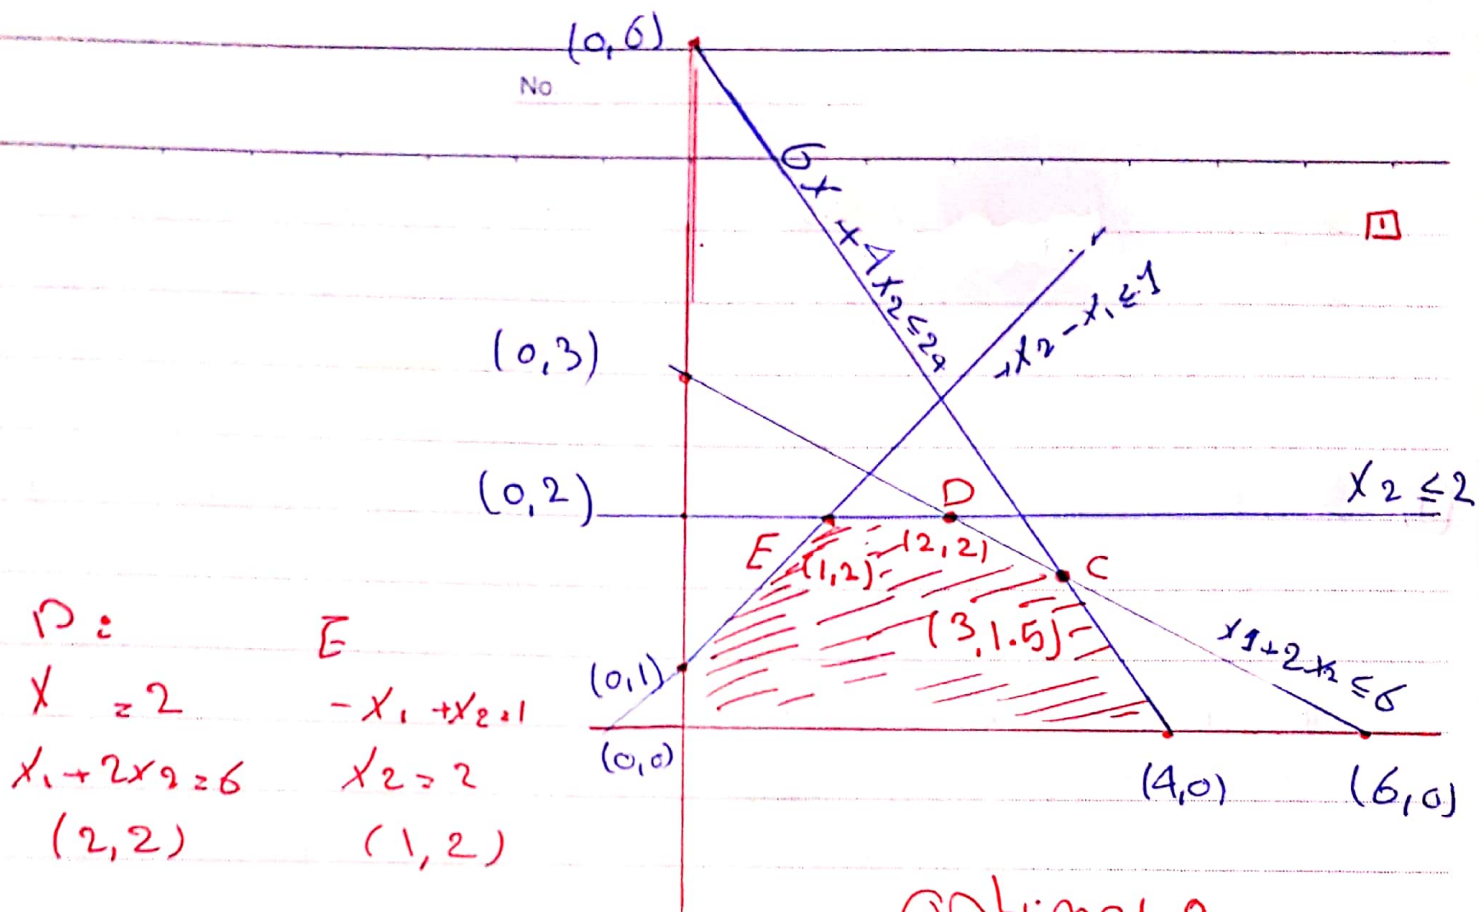 (0,6)
No
6x + 4x2 ≤ 24
1
x2 - x1 ≤ 1
(0,3)
(0,2)
x2 ≤ 2
D
E
(1,2)
(2,2)
C
(3,1.5)
x1+2x2 ≤ 6
(0,1)
(0,0)
(4,0)
(6,0)
D:
x = 2
x1+2x2=6
(2,2)
E
-x1+x2=1
x2=2
(1,2)